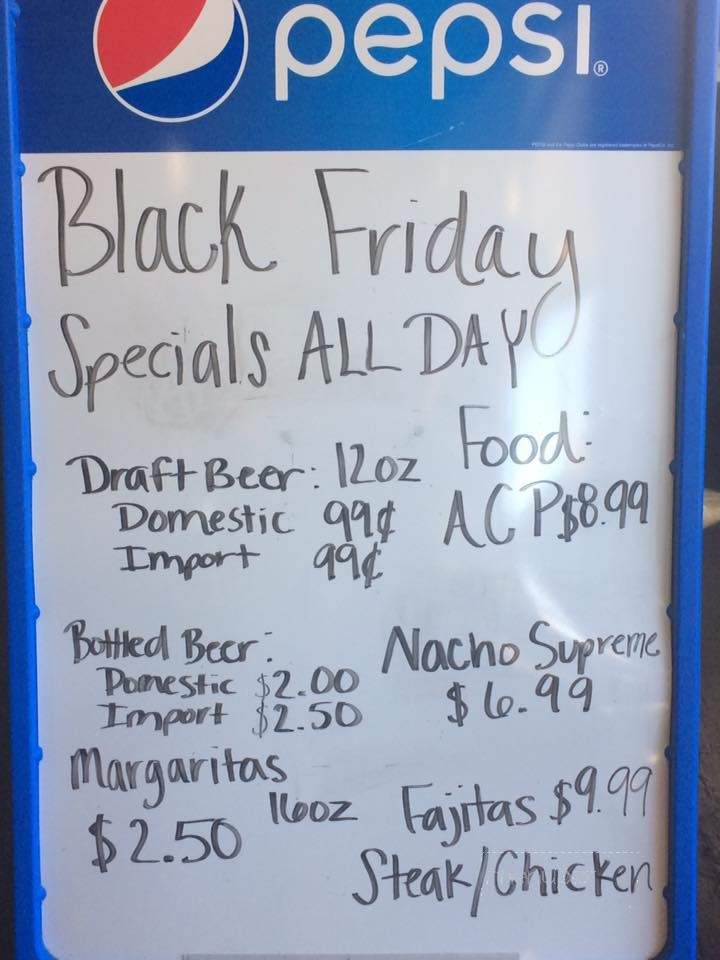 pepsi®
Black Friday
Specials ALL DAY
Draft Beer: 12oz
Domestic 99¢
Import 99¢
Food:
ACP $8.99
Bottled Beer:
Domestic $2.00
Import $2.50
Nacho Supreme
$6.99
Margaritas
16oz
$2.50
Fajitas $9.99
Steak/Chicken